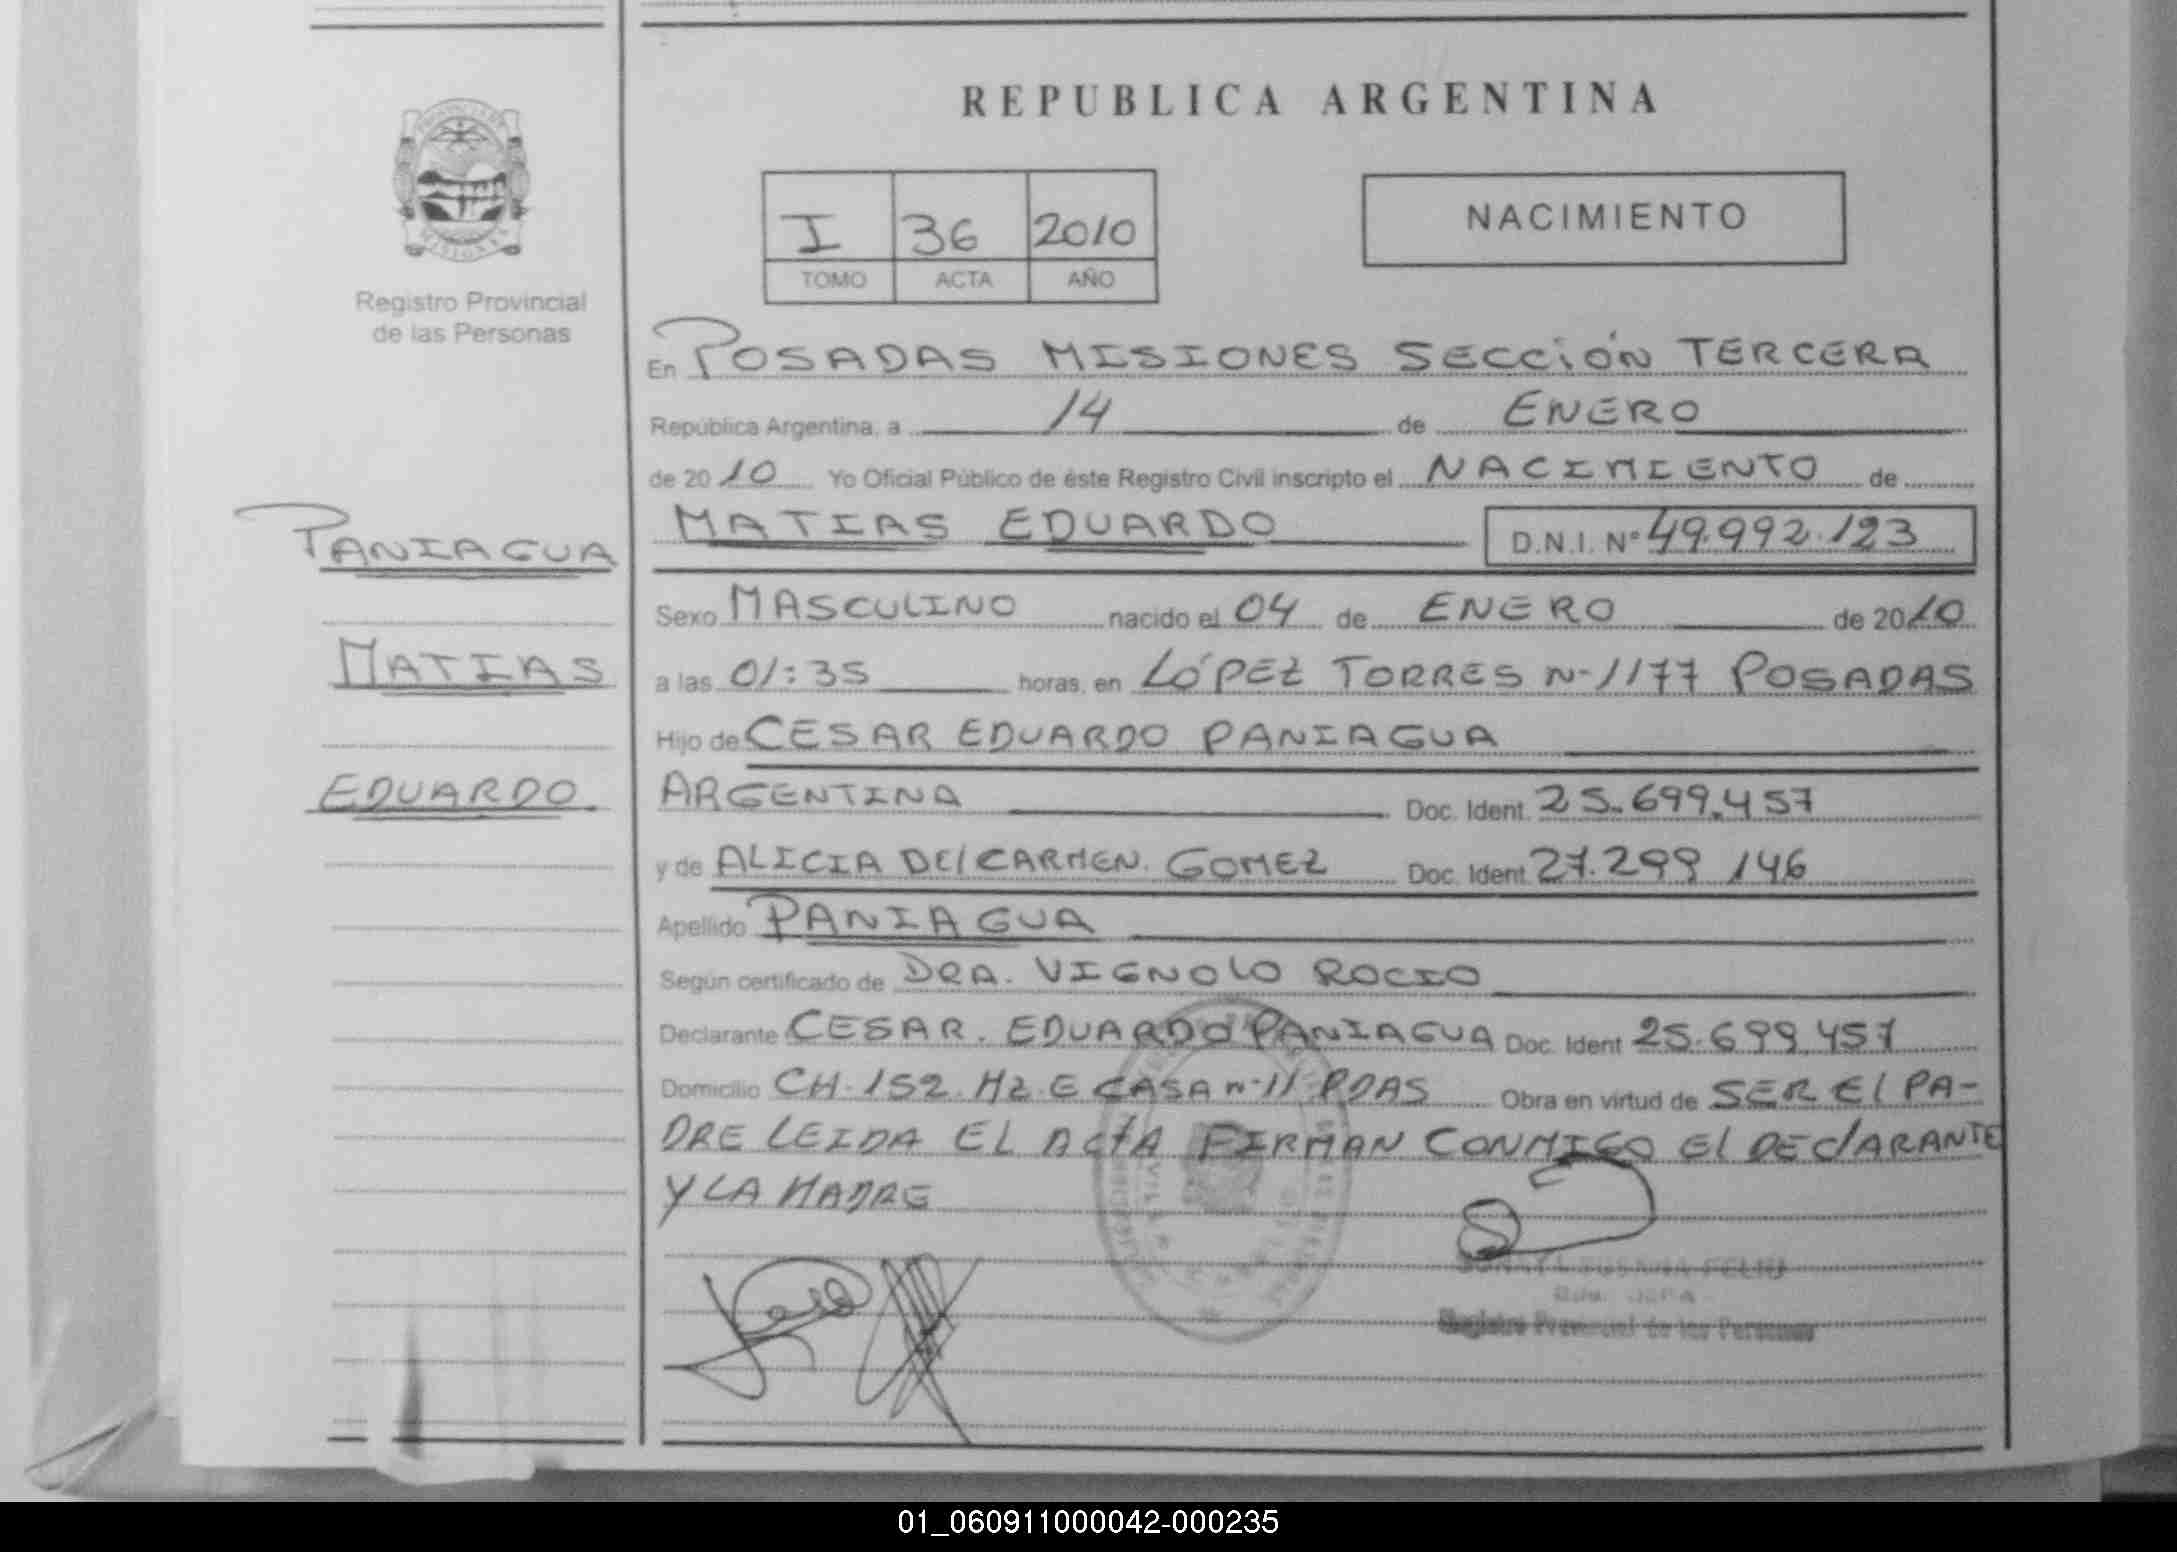 REPUBLICA ARGENTINA
I 36 2010
TOMO ACTA AÑO
NACIMIENTO
Registro Provincial
de las Personas
En POSADAS MISIONES SECCIÓN TERCERA
República Argentina, a 14 de ENERO
de 2010 Yo Oficial Público de éste Registro Civil inscripto el NACIMIENTO de
MATIAS EDUARDO D.N.I. Nº 49.992.123
PANIAGUA
MATIAS
EDUARDO
Sexo MASCULINO nacido el 04 de ENERO de 2010
a las 01:35 horas, en LÓPEZ TORRES N-1177 POSADAS
Hijo de CESAR EDUARDO PANIAGUA
ARGENTINA Doc. Ident. 25.699.457
y de ALICIA DEL CARMEN. GOMEZ Doc. Ident. 27.299 146
Apellido PANIAGUA
Según certificado de DRA. VIGNOLO ROCIO
Declarante CESAR. EDUARDO PANIAGUA Doc. Ident 25.699.457
Domicilio CH-152. MZ. E CASA N-11 PDAS Obra en virtud de SER EL PA-
DRE LEIDA EL ACTA FIRMAN CONMIGO EL DECLARANTE
Y LA MADRE
FELIU
Registro Provincial de las Personas
01_060911000042-000235